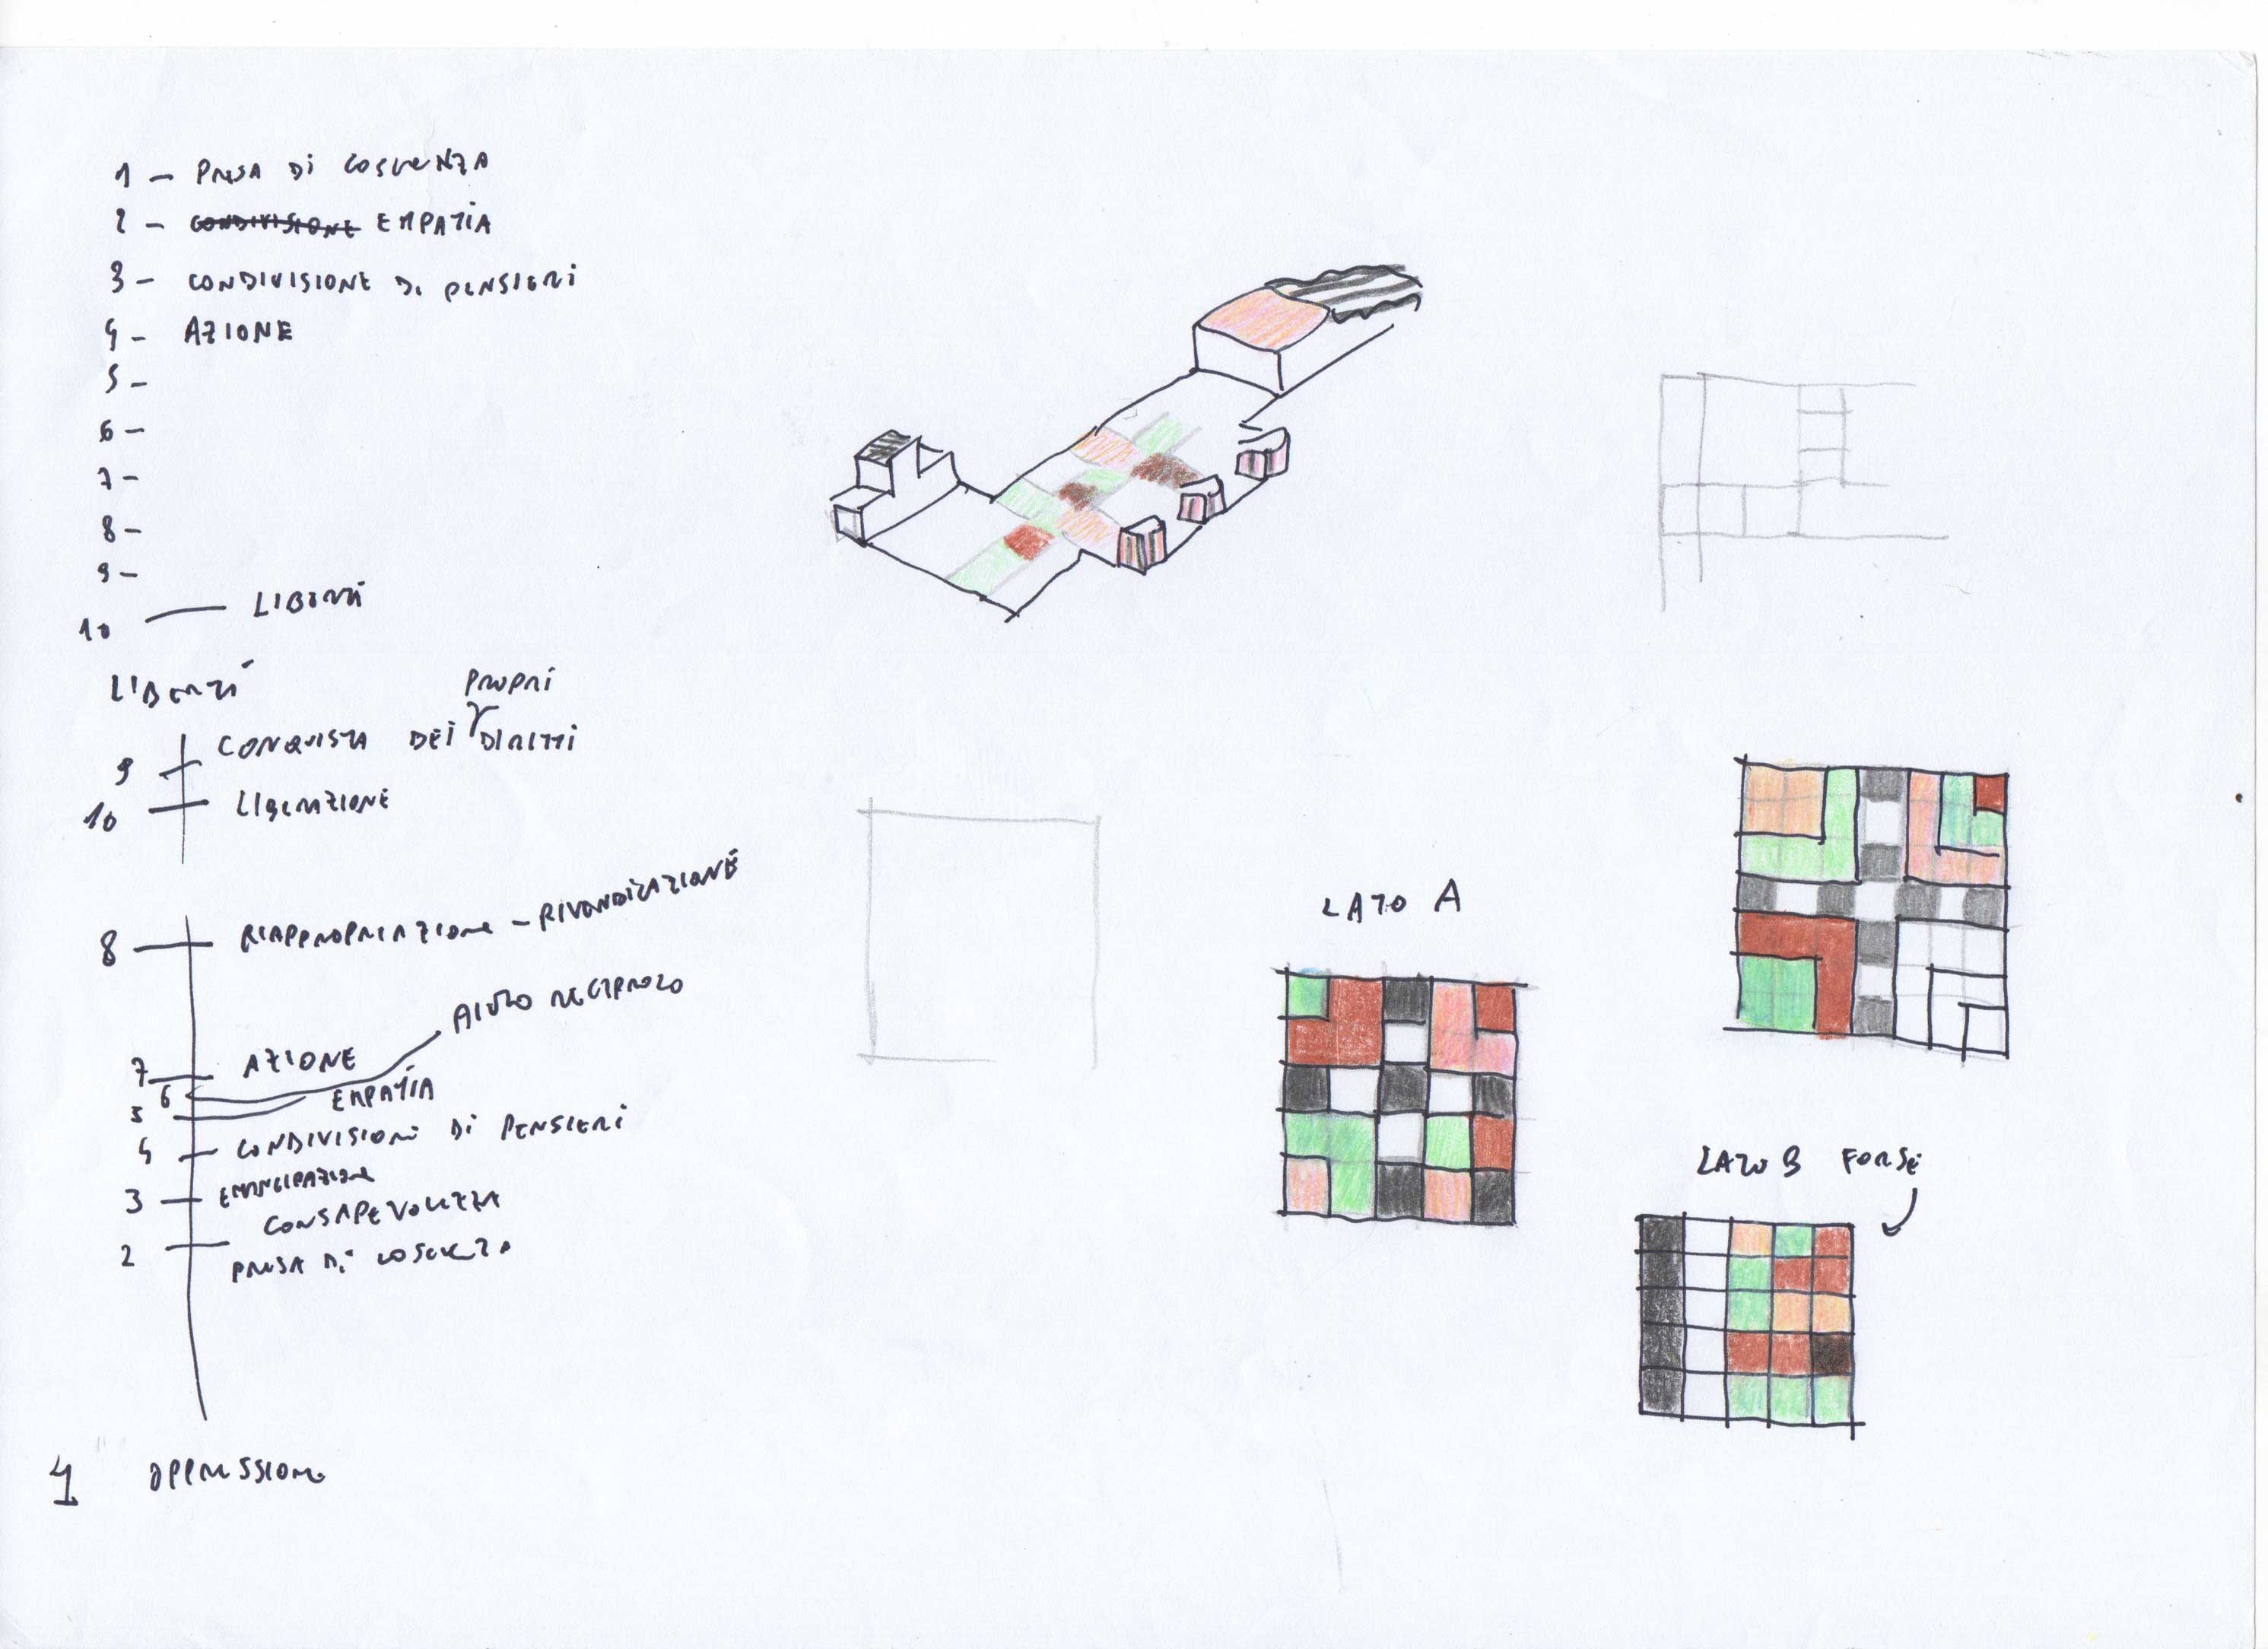 1 - PRESA DI COSCIENZA
2 - CONDIVISIONE EMPATIA
3 - CONDIVISIONE DI PENSIERI
4 - AZIONE
5 -
6 -
7 -
8 -
9 -
10 LIBERTÀ
LIBERTÀ
PROPRI
9 CONQUISTA DEI DIRITTI
10 LIBERAZIONE
8 RIAPPROPRIAZIONE - RIVENDICAZIONE
AIUTO RECIPROCO
7 AZIONE
6
5 EMPATIA
4 CONDIVISIONE DI PENSIERI
3 EMANCIPAZIONE
CONSAPEVOLEZZA
2 PRESA DI COSCIENZA
1 OPPRESSIONE
LATO A
LATO B FORSE